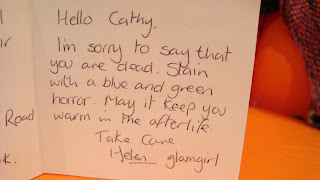 ir
Road
k.
Hello Cathy.
I'm sorry to say that
you are dead. Stain
with a blue and green
horror. May it keep you
warm in the afterlife.
Take Care
Helen glamgirl